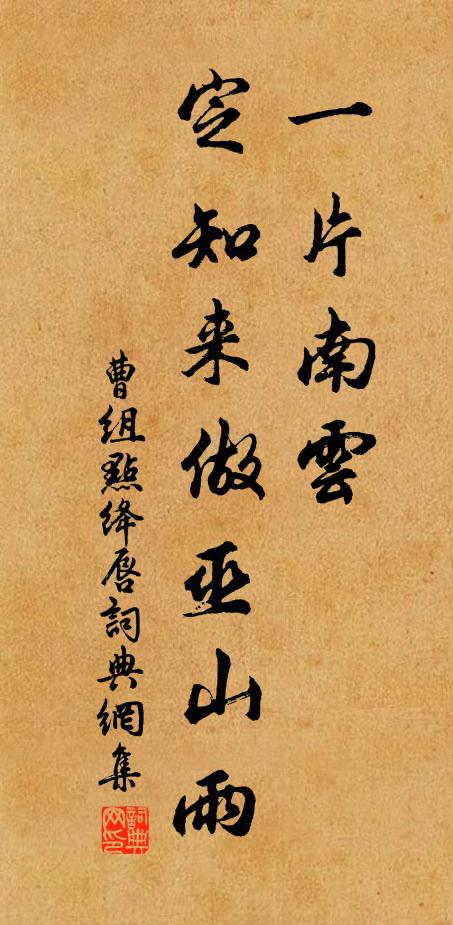 一片南雲
定知来做巫山雨
曹組點絳唇詞典網集
詞典网印